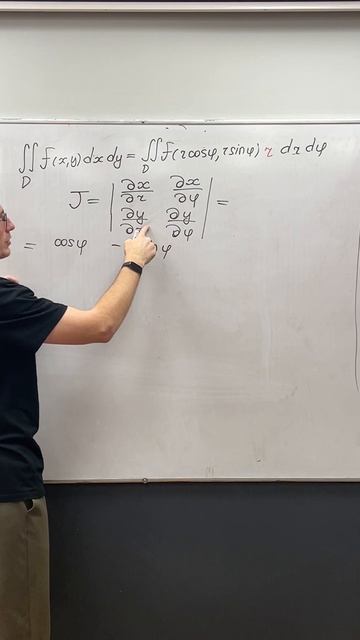 ∬_D f(x,y)dxdy = ∬_D f(rcosφ, rsinφ) r dr dφ
J = | ∂x/∂r ∂x/∂φ |
| ∂y/∂r ∂y/∂φ | =
= cosφ -